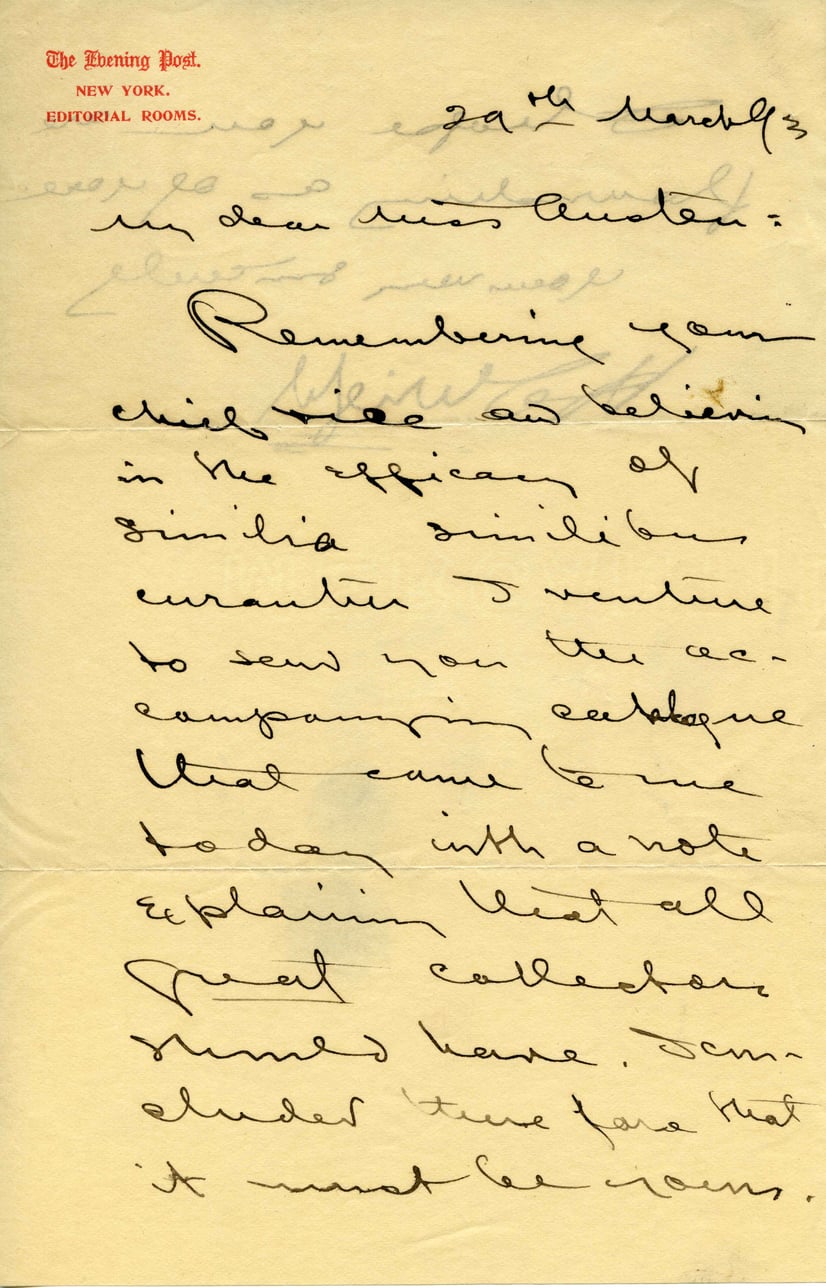 The Evening Post.
NEW YORK.
EDITORIAL ROOMS.
29th March 93
My dear Miss Austen:
Remembering your
chief vice and believing
in the efficacy of
similia similibus
curantur I venture
to send you the ac-
companying catalogue
that came to me
today with a note
explaining that all
great collectors
should have. I con-
cluded therefore that
it must be yours.